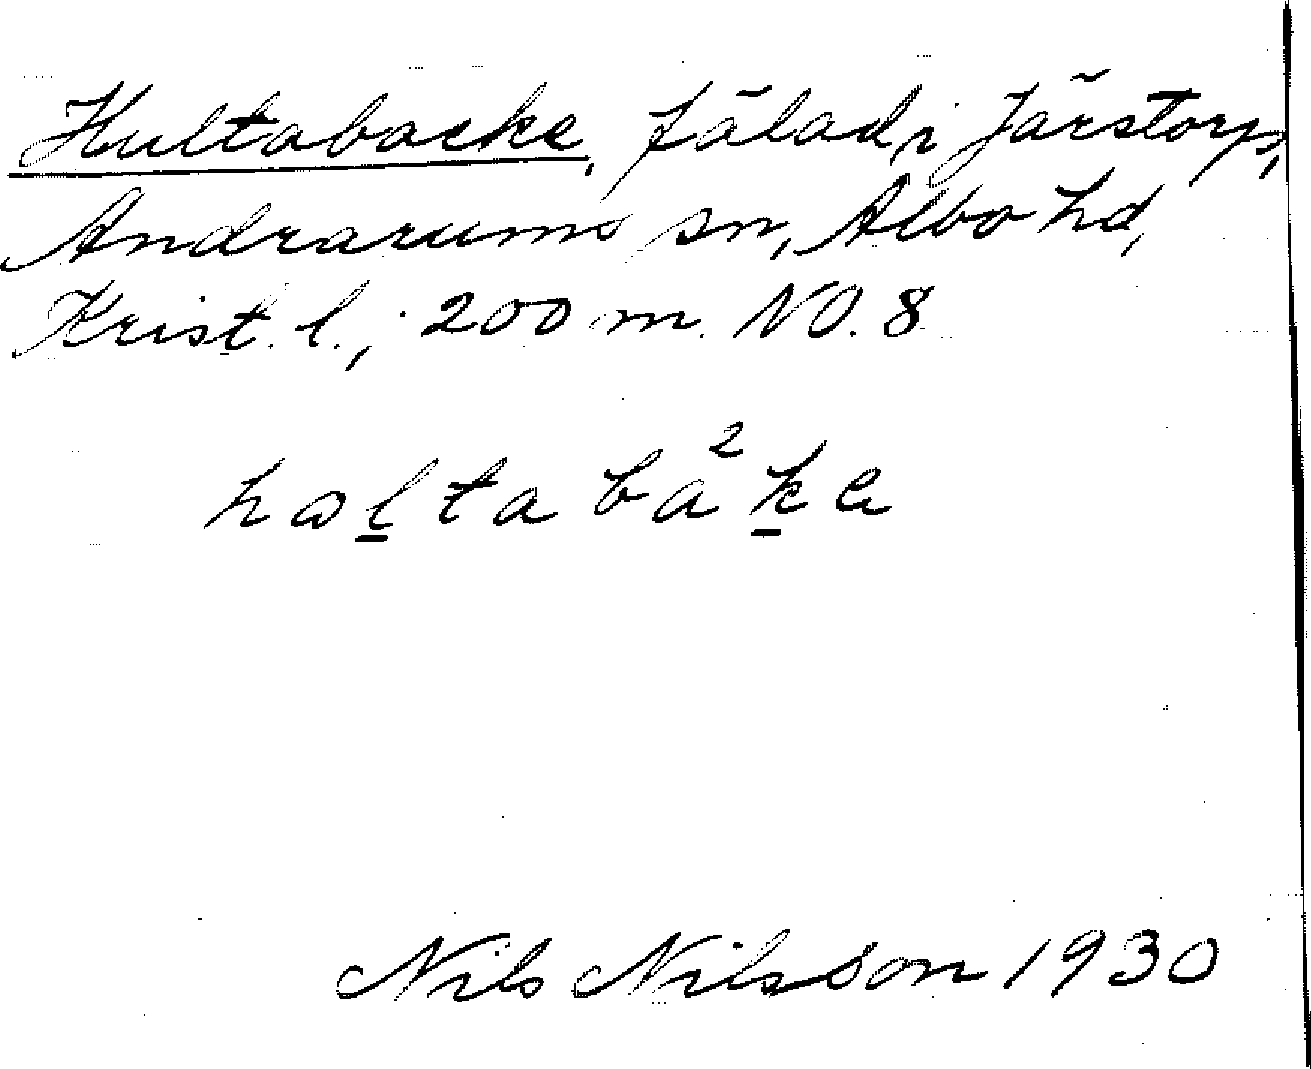 Hultabacke, fälad i Järstorp,
Andrarums sn, Albo hd,
Krist. l., 200 m. NO. 8
hωltaba²ke
Nils Nilsson 1930